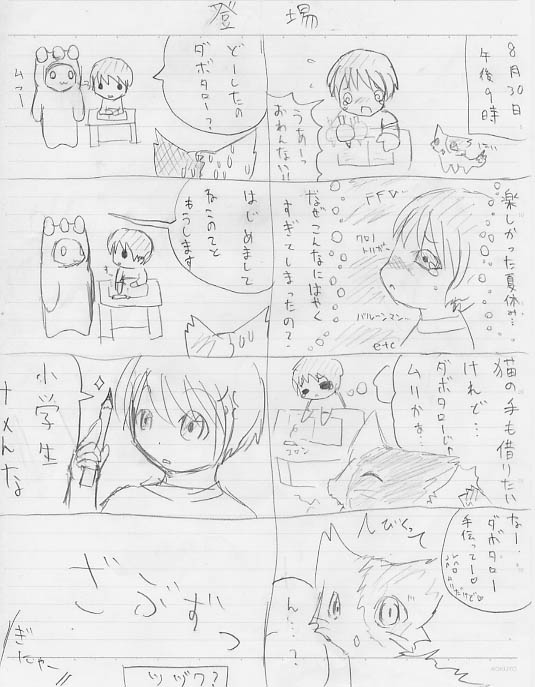 登場
8月30日
午後9時
うあー!
おわんない!!
楽しかった夏休み…
なぜこんなにはやく
すぎてしまったの?
FFV…
クロノ
トリガー
バルーンマン…
etc
猫の手も借りたい
けれど…
ダボタローじゃ
ムリかな…
コロン
なー…
ダボタロー
手伝ってー♡
びくっ
ん…?
どーしたの
ダボタロー?
ムァー
はじめまして
ねこのてと
もうします
小学生
ナメんな
ざぶずっ
ぎにゃー!!
ツヅク?